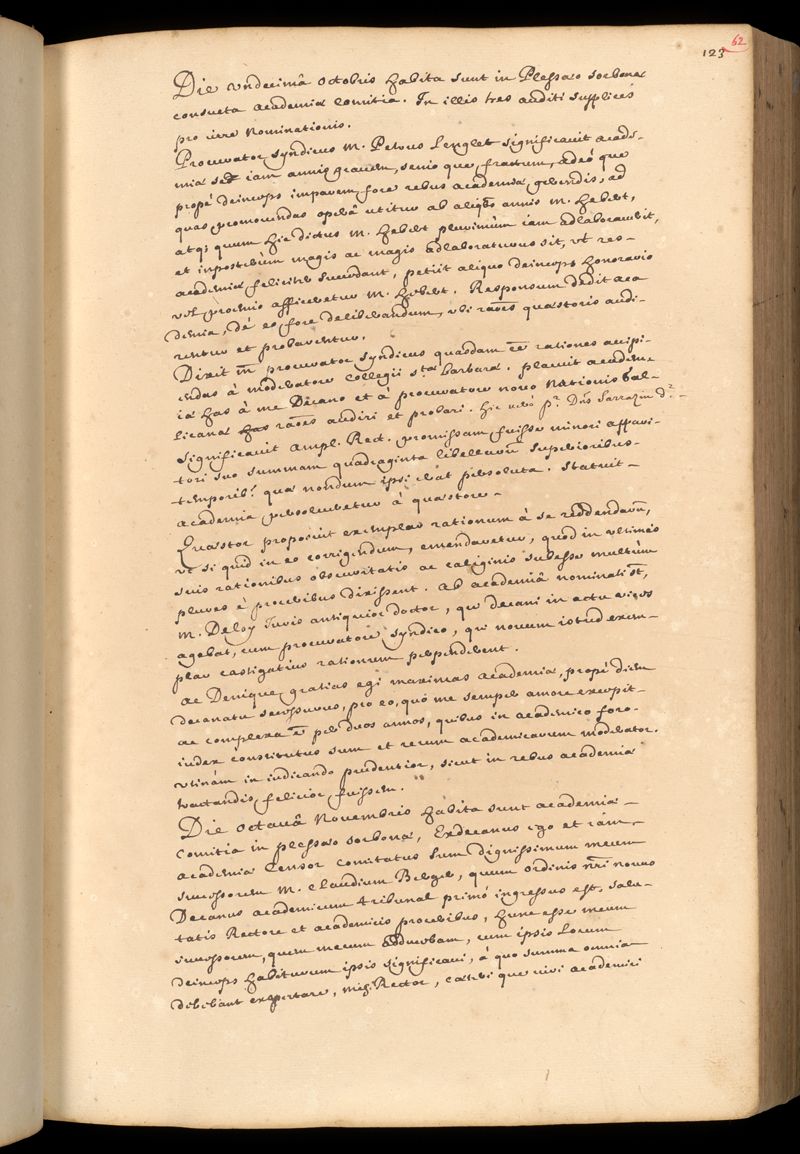 62
123
Die undecimâ octobris habita sunt in Plessæo sorbonæ
consueta academiæ comitia. In illis tres auditi supplices
pro iure nominationis.
Procurator syndicus M. Petrus Lenglet significavit acade-
miæ se iam annis gravem, senio que fractum, adeó que
propé deinceps imparem fore rebus academiæ gerendis, ad
quas promovendas operâ utitur ab aliquot annis M. hebert,
atq; quum hic dictus M. hebert plurimùm iam adlaboraverit,
et inposterùm magis ac magis adlaboraturus sit, ut res
academiæ feliciter succedant, petiit aliquo deinceps honorario
vel præmio afficeretur M. hebert. Responsum dedit aca
demia, dé eo fore deliberandum, ubi raões quæstoris audi-
rentur et probarentur.
Dixit m̃ procurator syndicus quasdam ẽẽ rationes accipi-
endas à moderatore collegii stæ barbaræ. placuit academ
iæ has à me Decano et à procuratore novo nationis Gal-
licanæ has raões audiri et probari. hic verò pr. Dnus Sarrazin dr.
significavit ampl. Rect. promissam fuisse minori appari-
tori suo summam quadraginta libellarũ superioribus
temporib? quæ nondum ipsi erat persoluta. statuit
academia persolveretur à quæstore
Quæstor proposuit exemplar rationum à se reddendarũ,
ut si quid in eo corrigendum, emendaretur, quod in ultimis
suis rationibus obscuritatis ac caliginis subesse multùm
plures è proceribus dixissent. ab academiâ nominati st̃,
M. Deloy Iuris antiquior doctor, qui decani in actu vices
agebat, cum procuratore syndico, qui novum istud exem-
plar castigatius rationum perpenderent.
ac Denique gratias egi maximas academiæ, propé diem
decanatu secessurus, pro eo, quò me semper amore excepit
ac complexa ẽ per duos annos, quibus in academico foro
iudex constitutus sum et rerum academicarum moderator.
utinam in iudicando prudentior, sicut in rebus academiæ
tractandis felicior fuissem.
Die octavâ Novembris habita sunt academiæ
comitia in plessæo sorbonæ, Exdecanus ego et iam
academiæ Censor comitatus sum dignissimum meum
successorem M. claudium Berger, quum ordinis nr̃i novus
Decanus academicum tribunal primò ingressus est. salu-
tatis Rectore et academicis proceribus, hunc esse meum
successorem, quem mecum adducebam, cum ipsis locum
deinceps habiturum ipsis significavi, à quo summa omnia
debebant expectare, Rector, cæteri que viri academici